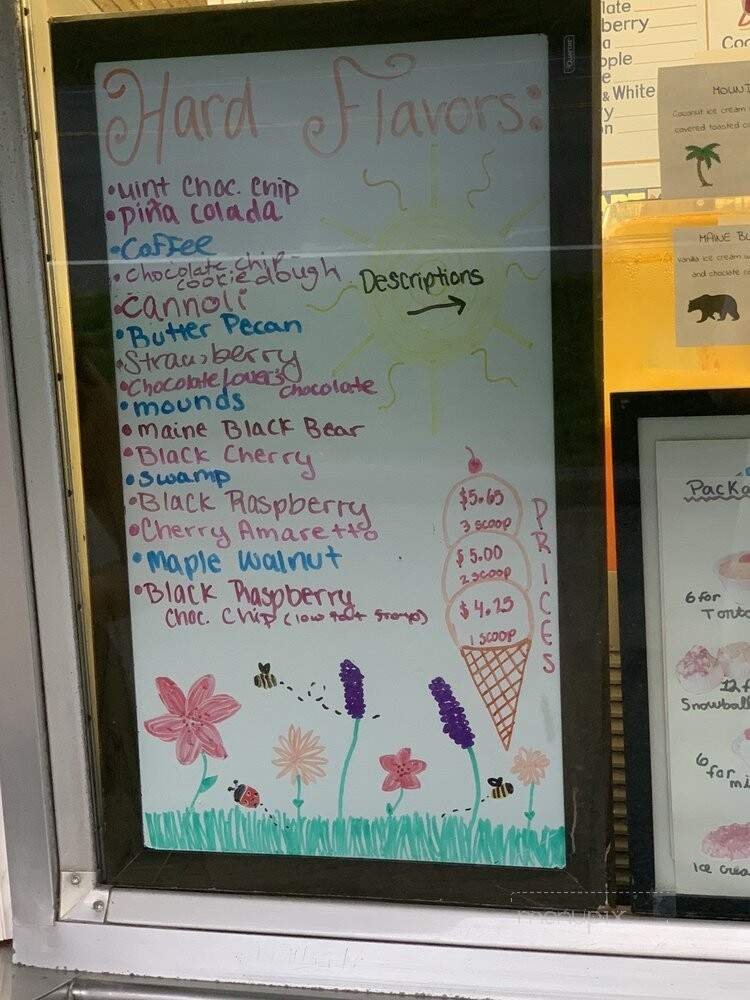 Hard Flavors:
•Mint Choc. Chip
•piña colada
•Coffee
•Chocolate Chip-
cookiedough
•Cannoli
•Butter Pecan
•Strawberry
•Chocolate Lover's chocolate
•mounds
•maine Black Bear
•Black Cherry
•swamp
•Black Raspberry
•Cherry Amaretto
•maple walnut
•Black Raspberry
Choc. Chip
Descriptions
$5.65
3 scoop
$5.00
2 scoop
$4.25
1 scoop
PRICES
late
berry
ople
& White
MOUN
Coconut ice cream
covered toasted co
MAINE BL
Vanilla ice cream
and choclate
Packa
6 for
12 f
Snowball
6 for
mi
Ice crea
menupix